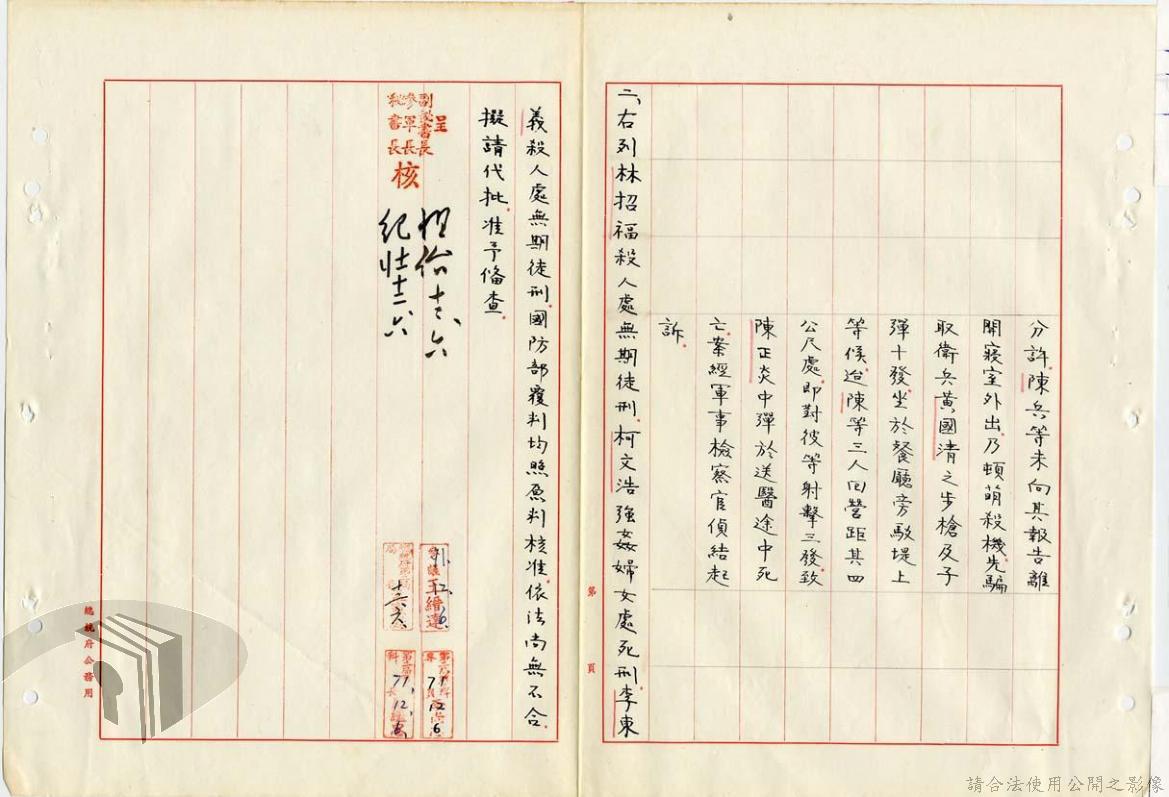 分許陳兵等未向其報告離
開寢室外出乃頓萌殺機先騙
取衛兵黃國清之步槍及子
彈十發坐於餐廳旁駁堤上
等候迨陳等三人回營距其四
公尺處即對彼等射擊三發致
陳正炎中彈於送醫途中死
亡案經軍事檢察官偵結起
訴
二、右列林招福殺人處無期徒刑柯文浩強姦婦女處死刑李東
第 頁
義殺人處無期徒刑國防部覆判均照原判核准依法尚無不合
擬請代批准予備查
呈
副秘書長
參軍長
秘書長
核
十二、六
十二、六
王縉達
71.12.6
71.12.6
總統府公務用
請合法使用公開之影像